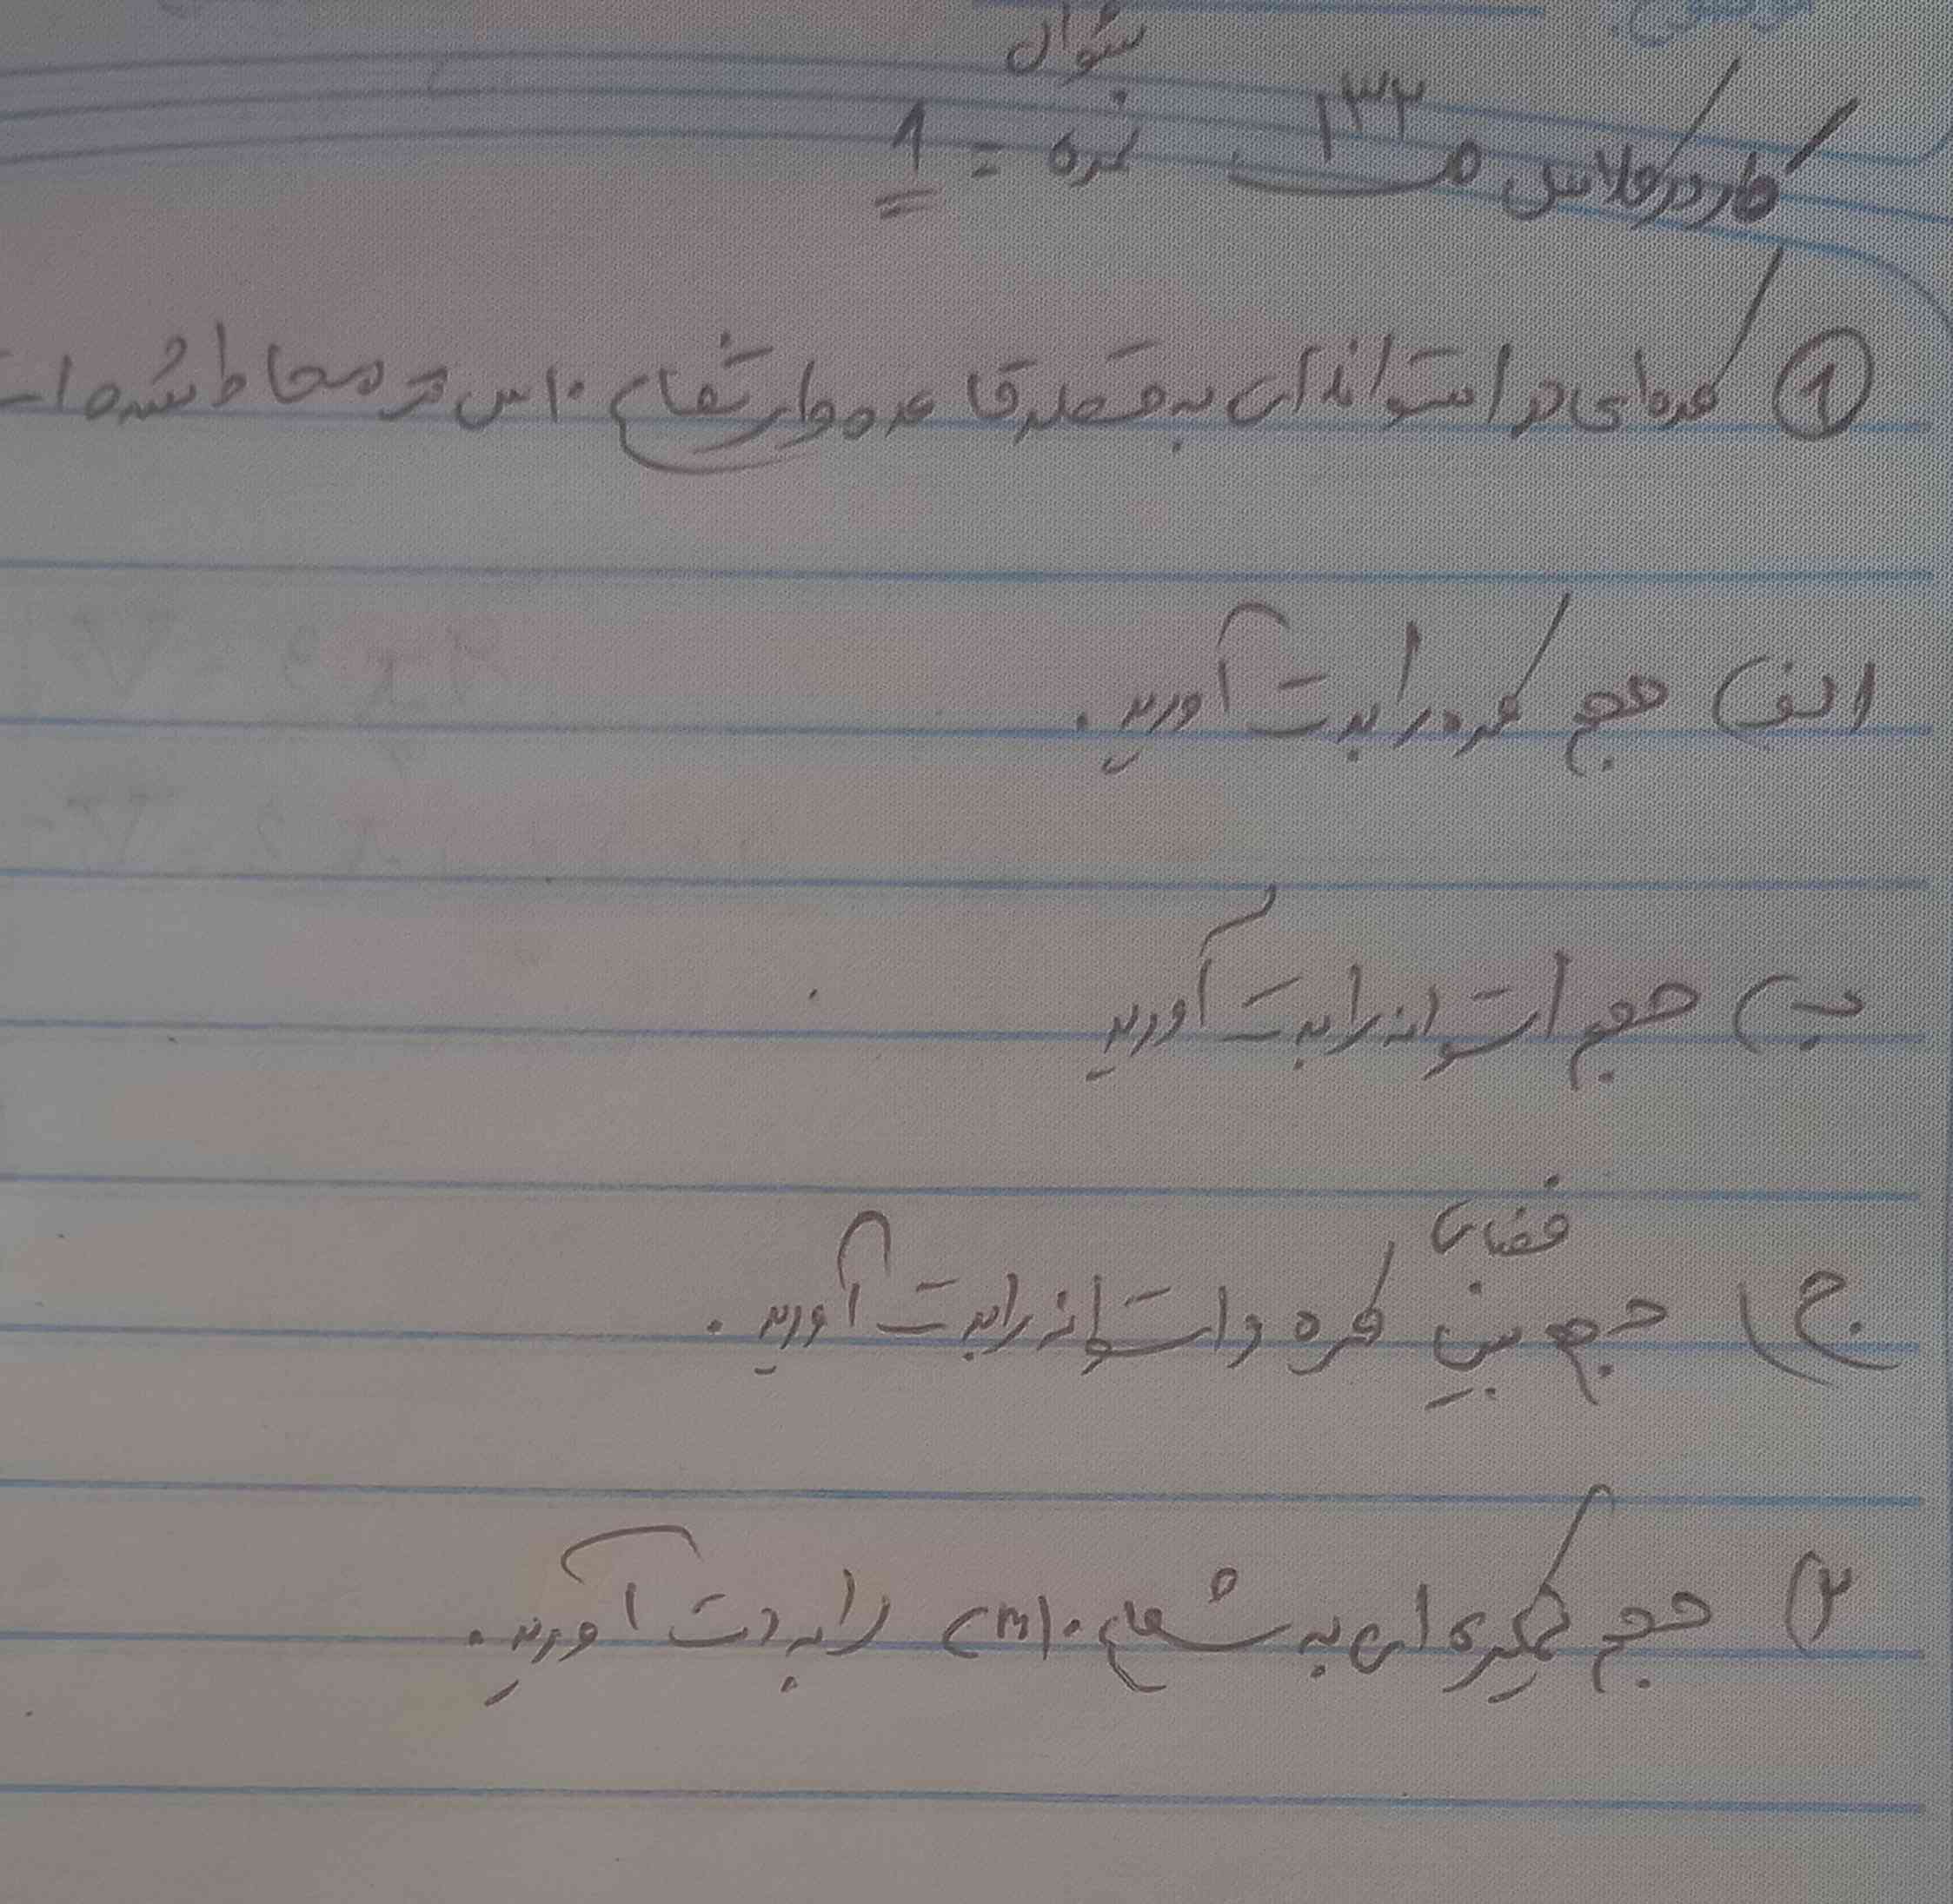 سئوال
کار در کلاس ص ۱۳۲ نمره = ۱
① کره‌ای در استوانه‌ای به قطر قاعده و ارتفاع ۱۰ س متر محاط شده است
الف) حجم کره را بدست آورید.
ب) حجم استوانه را بدست آورید
فضای
ج) حجم بین کره و استوانه را بدست آورید.
۲) حجم نیم‌کره‌ای به شعاع ۱۰cm را به دست آورید.